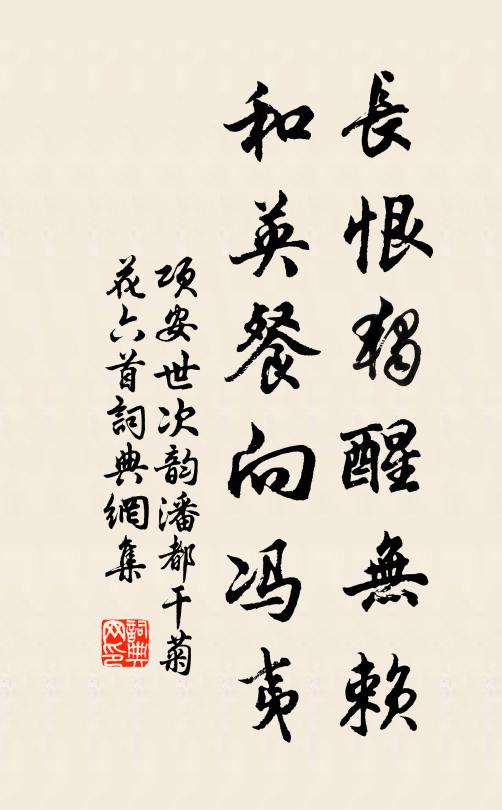 長恨獨醒無賴
和英餐向冯夷
项安世次韵潘都干菊
花六首詞典網集
詞典網印